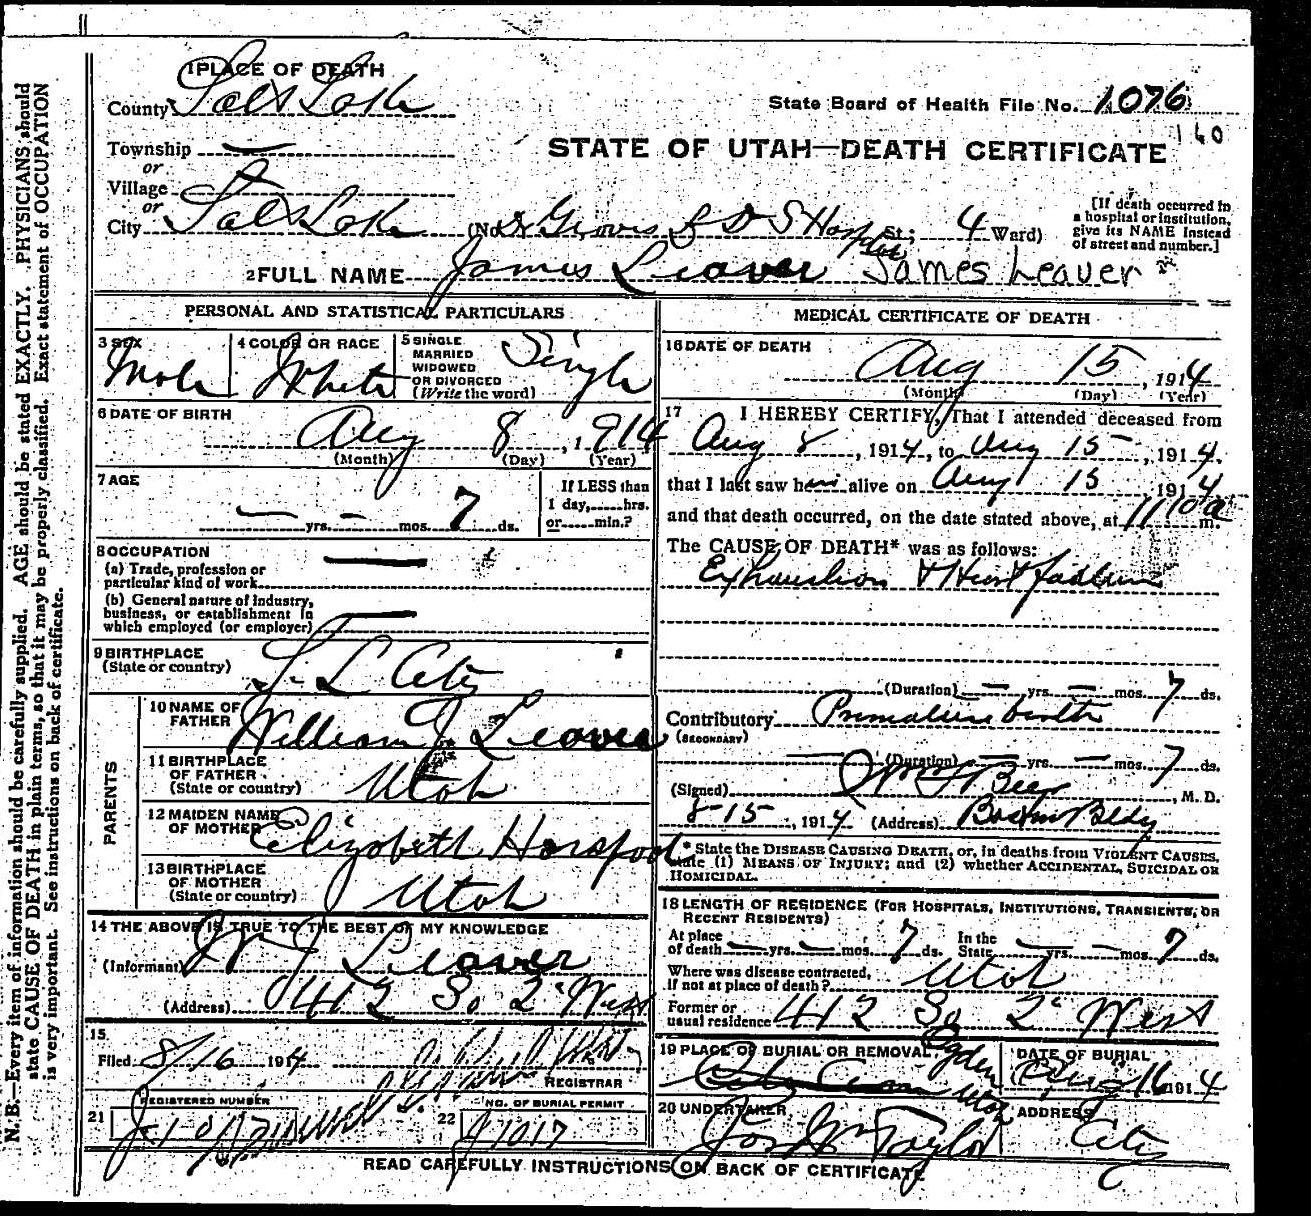 N. B.—Every item of information should be carefully supplied. AGE should be stated EXACTLY. PHYSICIANS should
state CAUSE OF DEATH in plain terms, so that it may be properly classified. Exact statement of OCCUPATION
is very important. See instructions on back of certificate.
1 PLACE OF DEATH
County Salt Lake
State Board of Health File No. 1076
160
Township —
or
Village
or
City Salt Lake
STATE OF UTAH—DEATH CERTIFICATE
(No. Groves L D S Hospital St; 4 Ward)
[If death occurred in
a hospital or institution,
give its NAME instead
of street and number.]
2 FULL NAME James Leaver James Leaver
PERSONAL AND STATISTICAL PARTICULARS
3 SEX
Male
4 COLOR OR RACE
White
5 SINGLE
MARRIED
WIDOWED
OR DIVORCED
(Write the word)
Single
6 DATE OF BIRTH
Aug 8, 1914
(Month) (Day) (Year)
7 AGE
— yrs. — mos. 7 ds.
If LESS than
1 day, hrs.
or min.?
8 OCCUPATION
(a) Trade, profession or
particular kind of work —
(b) General nature of Industry,
business, or establishment in
which employed (or employer) —
9 BIRTHPLACE
(State or country) S. L City
PARENTS
10 NAME OF
FATHER William J. Leaver
11 BIRTHPLACE
OF FATHER
(State or country) Utah
12 MAIDEN NAME
OF MOTHER Elizabeth Horspool
13 BIRTHPLACE
OF MOTHER
(State or country) Utah
14 THE ABOVE IS TRUE TO THE BEST OF MY KNOWLEDGE
(Informant) W J Leaver
(Address) 412 So 2 West
15
Filed 8/16 1914
REGISTRAR
21
REGISTERED NUMBER
22
NO. OF BURIAL PERMIT
J1017
MEDICAL CERTIFICATE OF DEATH
16 DATE OF DEATH
Aug 15, 1914
(Month) (Day) (Year)
17 I HEREBY CERTIFY, That I attended deceased from
Aug 8, 1914, to Aug 15, 1914,
that I last saw him alive on Aug 15 1914
and that death occurred, on the date stated above, at 11 10 a m.
The CAUSE OF DEATH* was as follows:
Exhaustion & Heart failure
(Duration) — yrs. — mos. 7 ds.
Contributory Premature birth
(SECONDARY)
(Duration) — yrs. — mos. 7 ds.
(Signed) Beer, M. D.
8-15, 1914 (Address) Boston Bldg
* State the DISEASE CAUSING DEATH, or, in deaths from VIOLENT CAUSES,
state (1) MEANS OF INJURY; and (2) whether ACCIDENTAL, SUICIDAL OR
HOMICIDAL.
18 LENGTH OF RESIDENCE (FOR HOSPITALS, INSTITUTIONS, TRANSIENTS, OR
RECENT RESIDENTS)
At place
of death — yrs. — mos. 7 ds. In the
State — yrs. — mos. 7 ds.
Where was disease contracted,
if not at place of death? Utah
Former or
usual residence 412 So 2 West
19 PLACE OF BURIAL OR REMOVAL
City Cem Ogden Utah
DATE OF BURIAL
Aug 16 1914
20 UNDERTAKER
Jos Wm Taylor
ADDRESS
City
READ CAREFULLY INSTRUCTIONS ON BACK OF CERTIFICATE